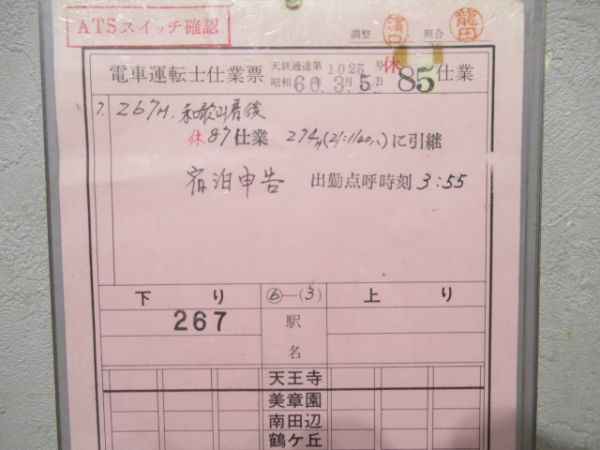 ATSスイッチ確認
調整 濱口 照合 龍田
電車運転士仕業票 天鉄通達第1025号 休85仕業
昭和60年3月5日
7. 267H. 和歌山着後
休87仕業 274H(21:11/40ハ)に引継
宿泊申告 出勤点呼時刻 3:55
下り ⑥—(3) 上り
267 駅名
天王寺
美章園
南田辺
鶴ケ丘